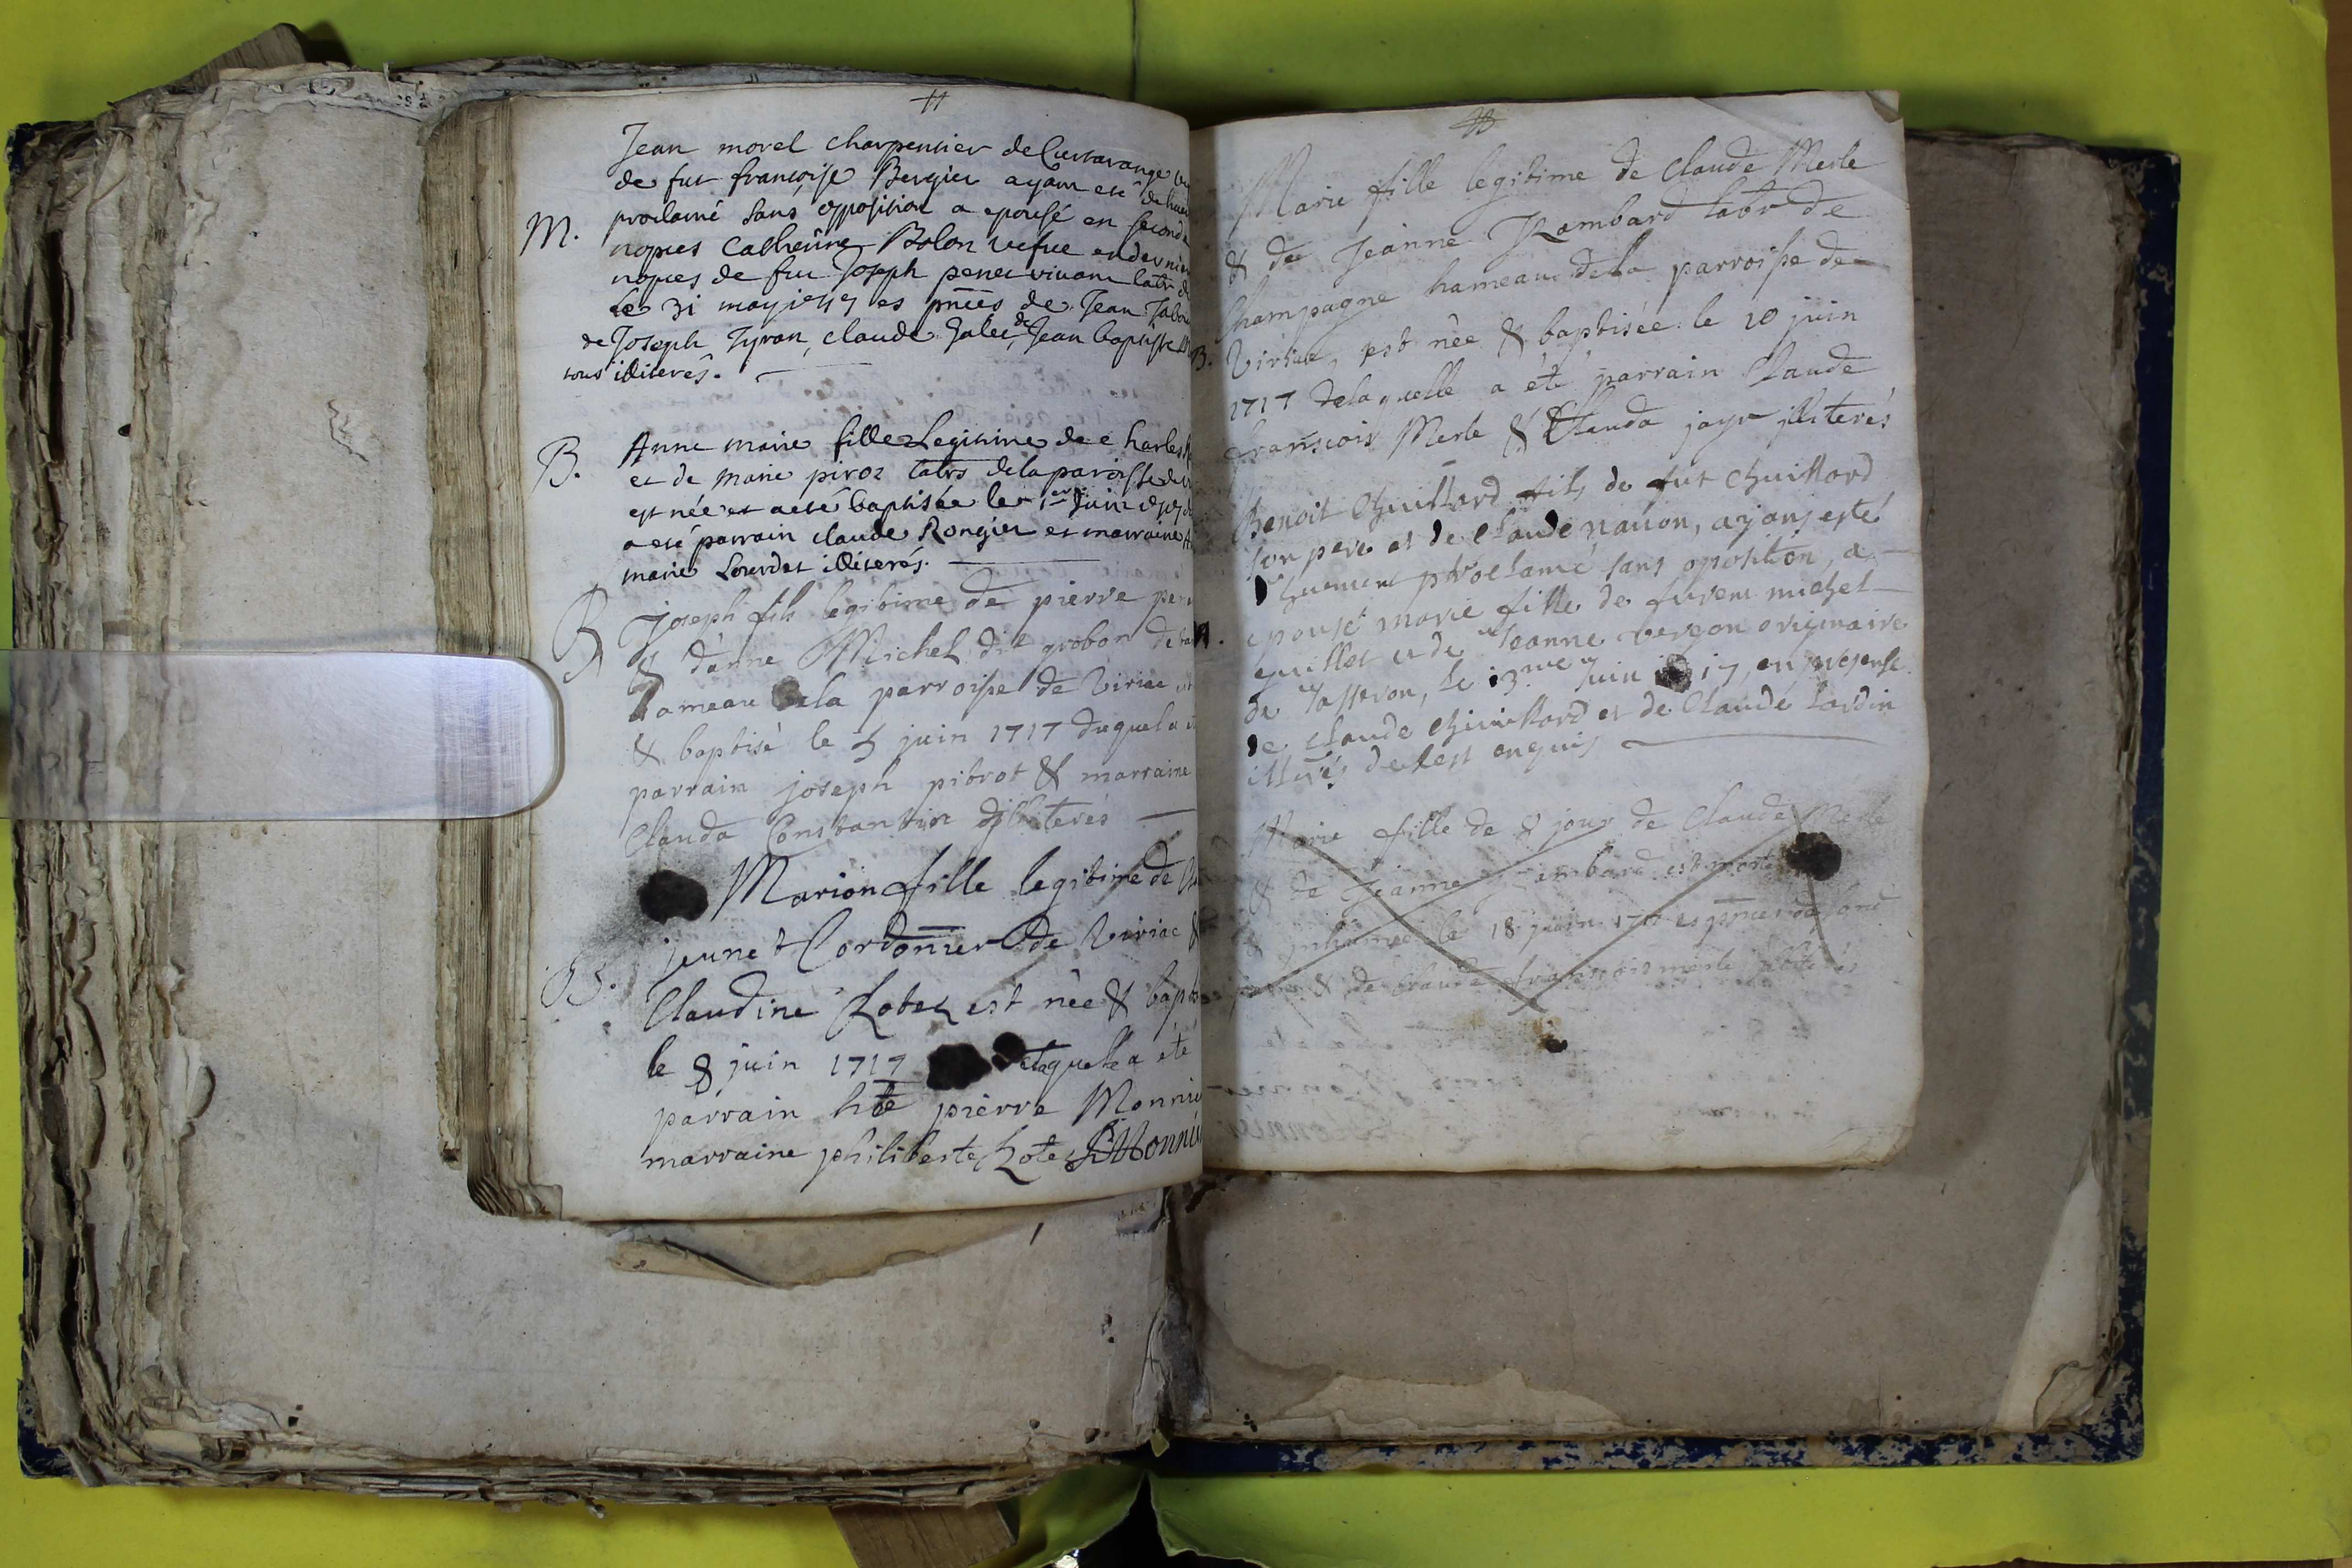 Jean morel charpentier de Curtarange
de fut françoise Bergier ayant eté
M. proclamé sans opposition a epousé en seconde
nopces Catherine Bolon vefue en dernier
nopces de feu Joseph penet vivant labr
le 31 may 1717 es pñces de Jean
de Joseph Tyran, claude de Jean baptiste
tous illiterés.
B. Anne marie fille Legitime de charles
et de marie piroz labrs de la paroisse de
est née et a eté baptisée le 1er Juin 1717
a eté parrain claude Rongier et marraine
marie Lourdet illiterés.
B Joseph fils legitime de pierre
& danne Michel dit grobon de
hameau de la parroisse de Viriac
& baptisé le 5 juin 1717 duquel a
parrain joseph pitrot & marraine
Clauda Constantin illiterés
Marion fille legitime de
jeune Cordonnier de Viriac &
B. Claudine Lotez est née & bapt
le 8 juin 1717 laquelle a été
parrain hte pierre Monnie
marraine philiberte Lotez Monnie
Marie fille legitime de Claude Merle
& de Jeanne Rambard labr de
Champagne hameau de la parroisse de
B. Viriac, est née & baptisée le 10 juin
1717 delaquelle a été parrain Claude
François Merle & Clauda jayr illiterés
Benoit Chuittard fils de fut Chuittard
son pere et de Claude nauon, ayans esté
proclamé sans oposition, a
epousé marie fille de michel
guillet et de Jeanne originaire
de Jasseron, le 13me Juin 1717, en presense
de Claude Chuittard et de Claude Lardin
illiterés de lest enquis
Marie fille de 8 jour de Claude Merle
& de Jeanne Rambard est morte
& inhumée le 18 juin 1717 es pñces de
& de Claude françois merle illiterés